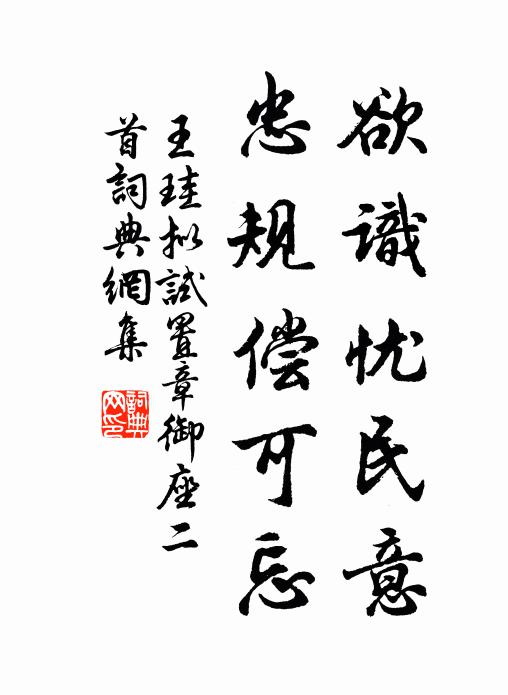 欲識忧民意
忠规偿可忘
王珪拟試置章御座二
首詞典網集
詞典网印